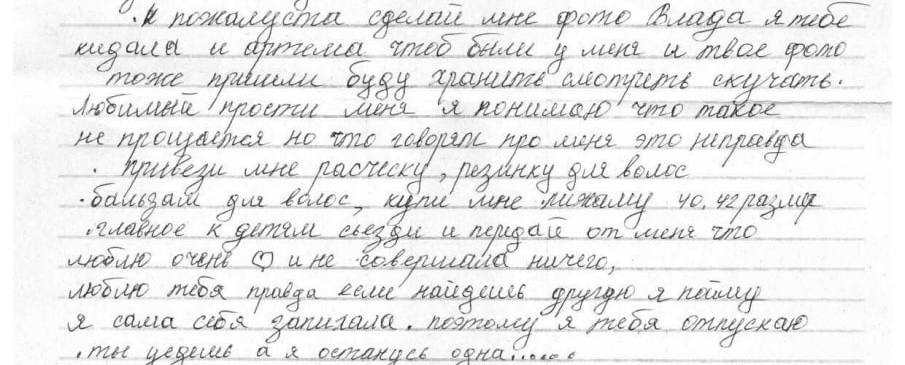 . и пожалуста сделай мне фото Влада я тебе
кидала и артема чтоб были у меня и твое фото
тоже пришли буду хранить смотреть скучать.
Любимый прости меня я понимаю что такое
не прощается но что говорят про меня это неправда
. привези мне расческу, резинку для волос
. бальзам для волос, купи мне пижаму 40.42 размер
. главное к детям сьезди и передай от меня что
люблю очень ♡ и не совершала ничего,
люблю тебя правда если найдешь другую я пойму
я сама себя запугала. поэтому я тебя отпускаю
. ты уедешь а я останусь одна......